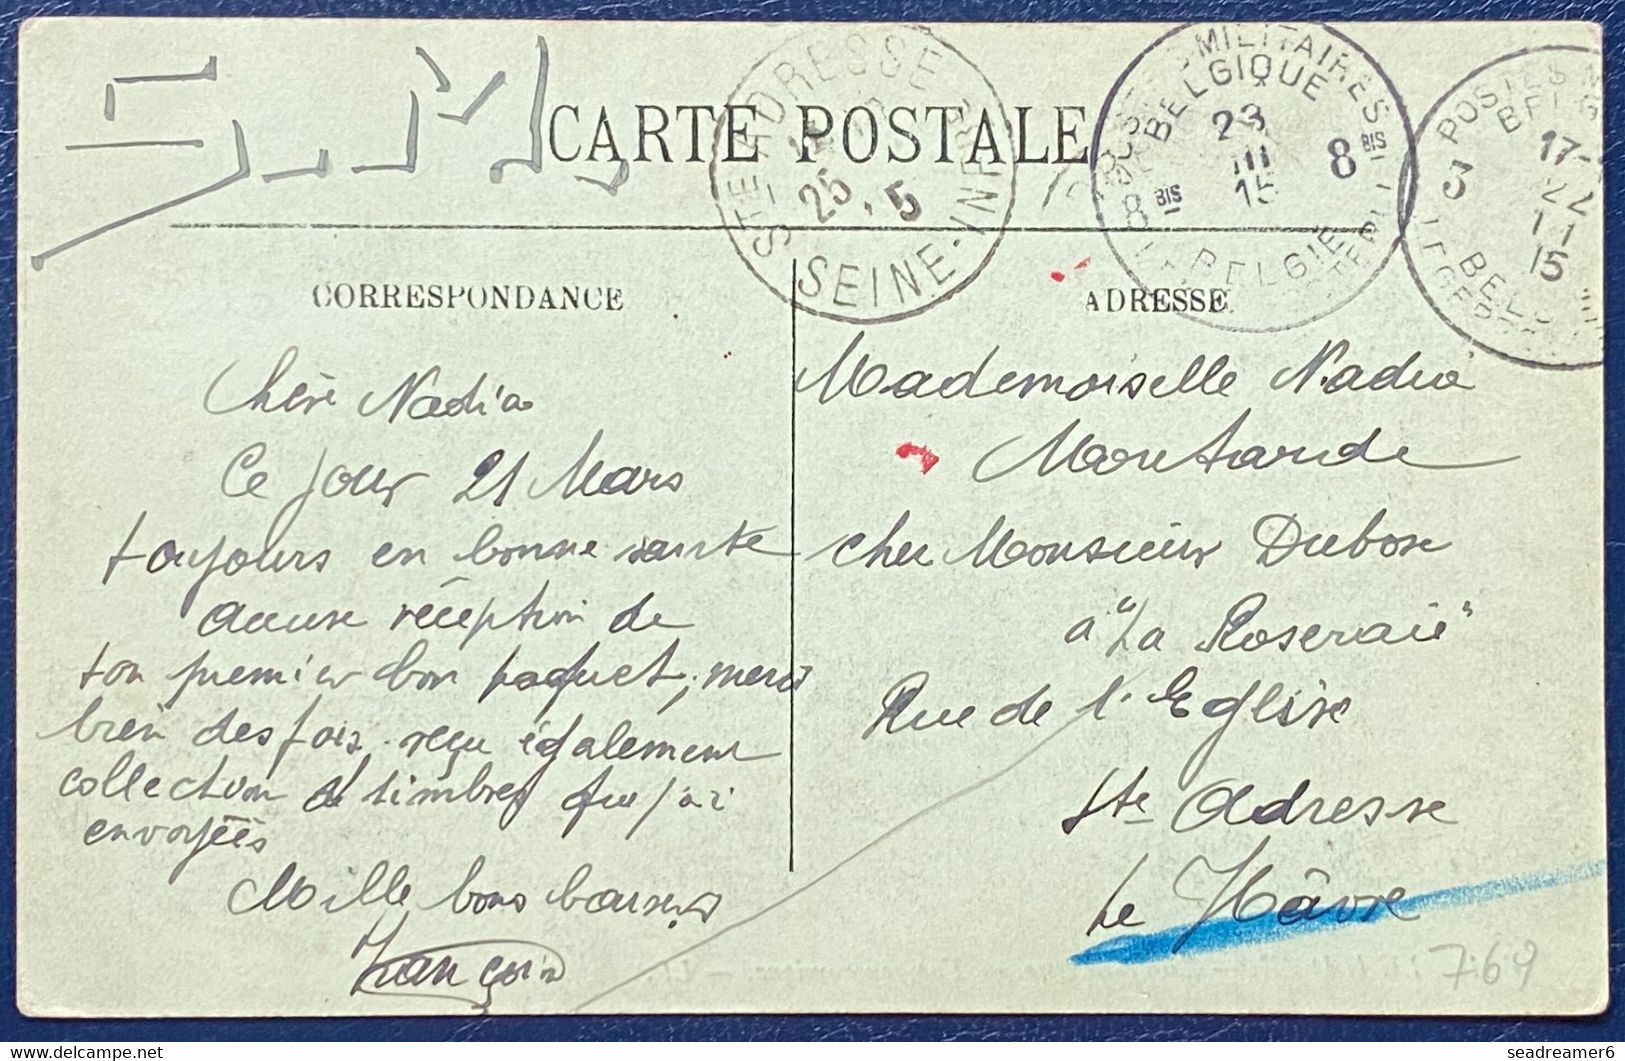 S.M.
CARTE POSTALE
STE-ADRESSE
25 . 5
SEINE-INFRE
POSTES MILITAIRES
BELGIQUE
23
III
15
8BIS 8BIS
BELGIE
POSTES M
3
17-
15
BELG
CORRESPONDANCE
Chère Nadia
Ce jour 21 Mars
toujours en bonne santé
accuse réception de
ton premier bon paquet, merci
bien des fois, reçu également
collection de timbres que j'ai
envoyées
Mille bons baisers
François
ADRESSE
Mademoiselle Nadia
Montande
chez Monsieur Dubosc
à "La Roseraie"
Rue de l'Eglise
Ste Adresse
Le Hâvre
769
delcampe.net
seadreamer6